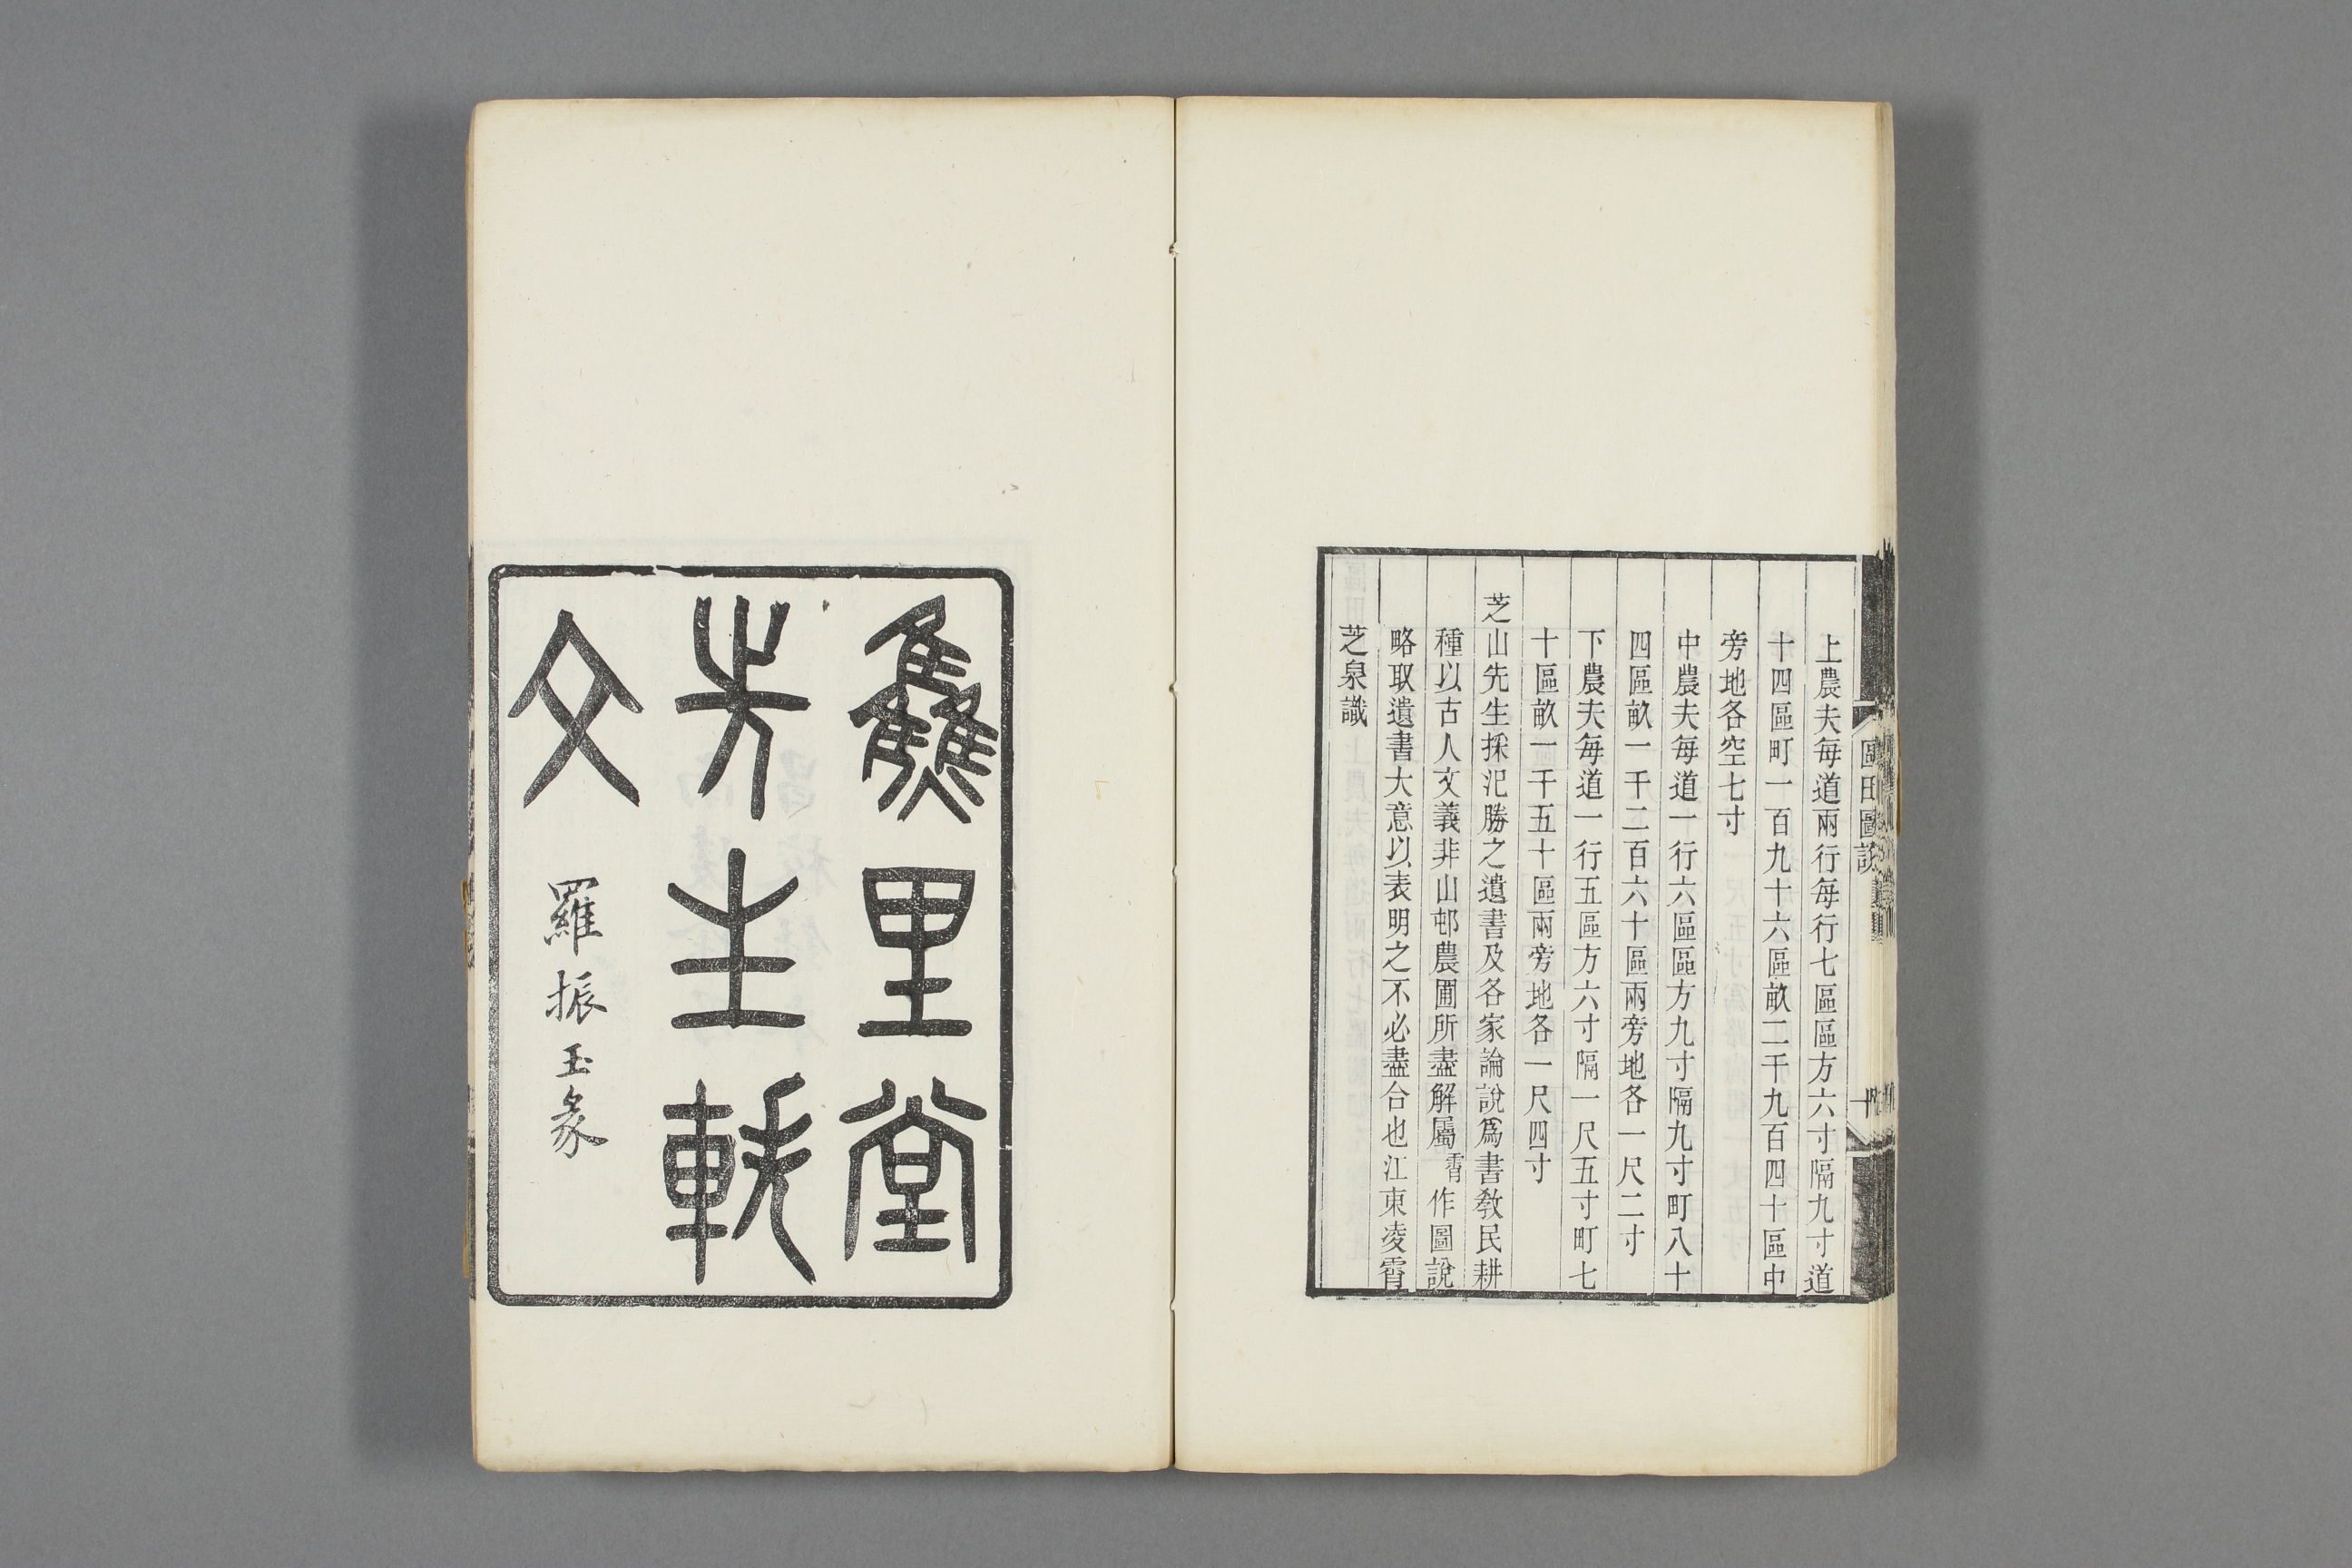 上農夫每道兩行每行七區區方六寸隔九寸道
十四區町一百九十六區畝二千九百四十區中
旁地各空七寸
中農夫每道一行六區區方九寸隔九寸町八十
四區畝一千二百六十區兩旁地各一尺二寸
下農夫每道一行五區方六寸隔一尺五寸町七
十區畝一千五十區兩旁地各一尺四寸
芝山先生採氾勝之遺書及各家論說爲書教民耕
種以古人文義非山邨農圃所盡解屬霄作圖說
略取遺書大意以表明之不必盡合也江東凌霄
芝泉識
區田圖說
十四
焦里堂
先生軼
文
羅振玉彖